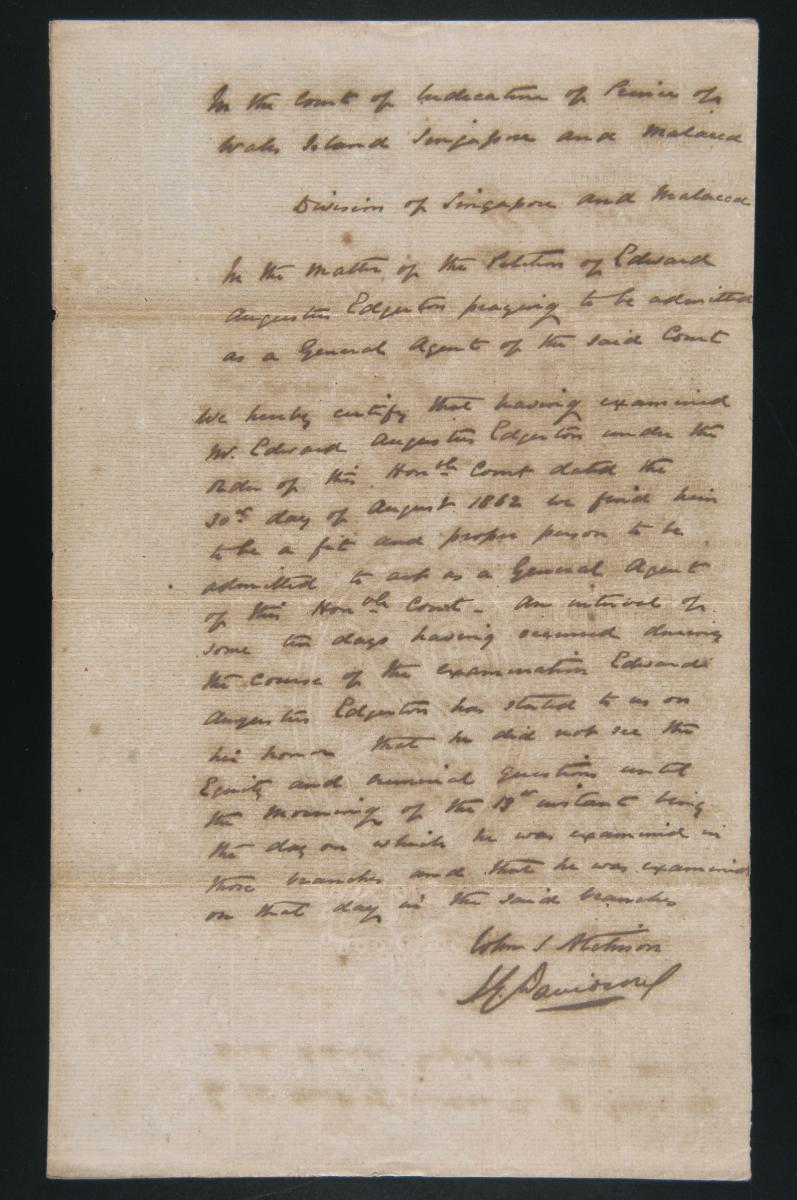 In the Court of Judicature of Prince of
Wales Island Singapore and Malacca
Division of Singapore and Malacca
In the Matter of the Petition of Edward
Augustus Edgerton praying to be admitted
as a General Agent of the said Court
We hereby certify that having examined
Mr. Edward Augustus Edgerton under the
Order of this Honble Court dated the
30th day of August 1862 we find him
to be a fit and proper person to be
admitted to act as a General Agent
of this Honble Court - An interval of
some ten days having occurred during
the course of the examination Edward
Augustus Edgerton has stated to us on
his honor that he did not see the
Equity and criminal questions until
the morning of the 13th instant being
the day on which he was examined in
those branches and that he was examined
on that day in the said branches
John S Atchison
J.G. Davidson